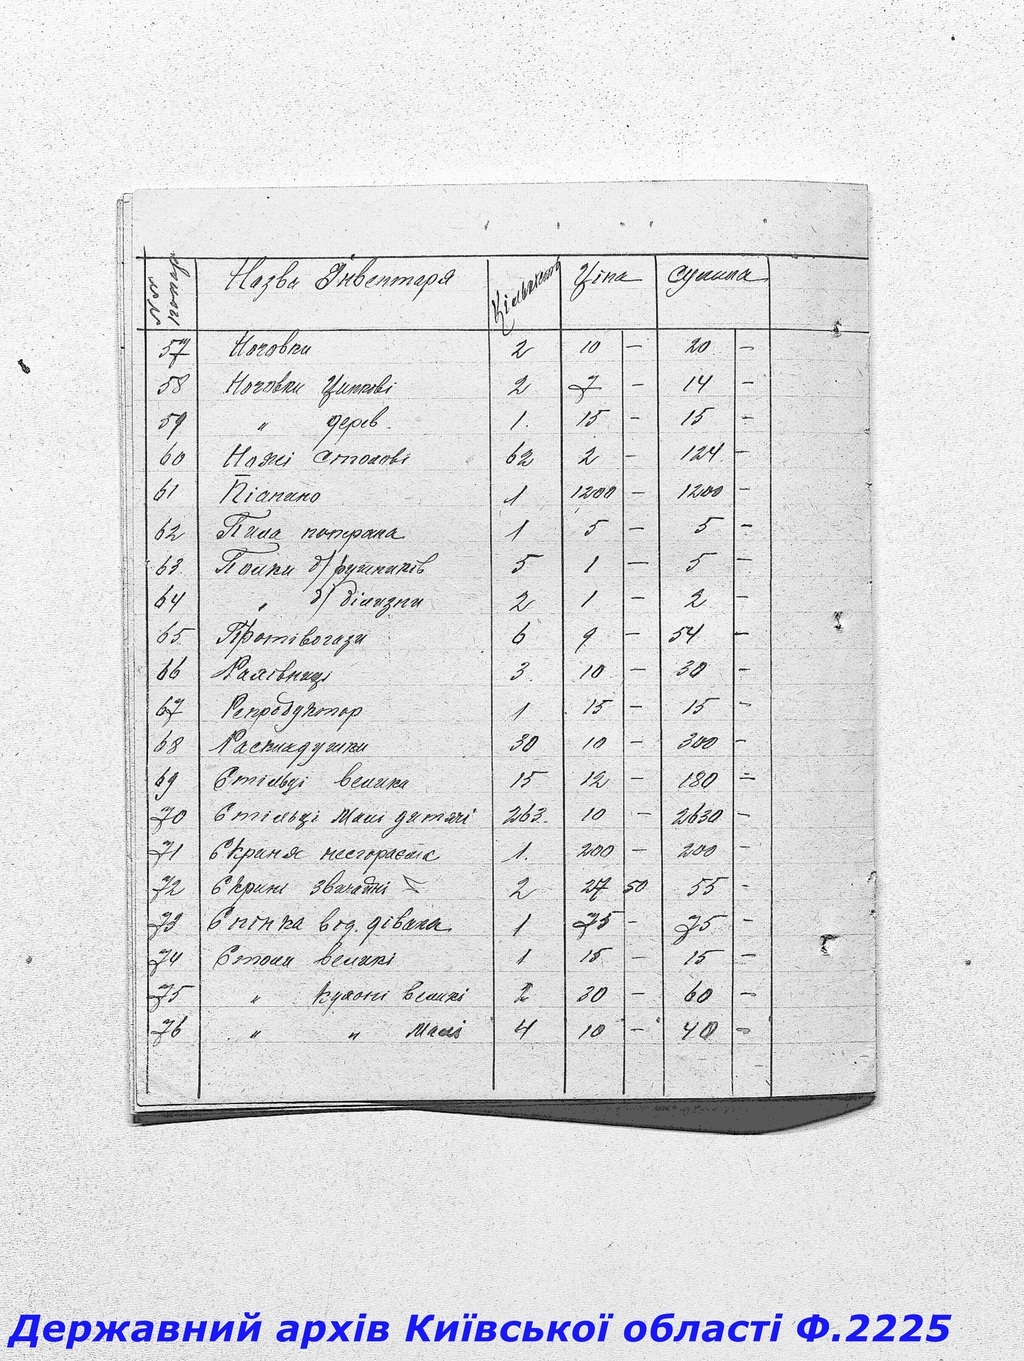 №№ по чер. Назва Інвентаря Кількість Ціна Сумма
57 Ночовки 2 10 — 20 —
58 Ночовки Цинкові 2 7 — 14 —
59 " дерев. 1. 15 — 15 —
60 Ножі столові 62 2 — 124 —
61 Піаніно 1 1200 — 1200 —
62 Пила поперена 1 5 — 5 —
63. Полки д/рушників 5 1 — 5 —
64 " д/білизни 2 1 — 2 —
65 Протівогази 6 9 — 54 —
66 3. 10. — 30 —
67 Репродуктор 1 15 — 15 —
68 Раскладушки 30 10 — 300 —
69 Стільці велика 15 12 — 180 —
70 Стільці малі дитячі 263. 10 — 2630 —
71 Скриня несгораєма 1. 200 — 200 —
72 Скрині звичайні 2 27 50 55 -
73 Спінка від дівана 1 75 - 75 -
74 Столи великі 1 15 — 15 —
75 " кухоні великі 2 30 — 60 —
76 " " малі 4 10 — 40 —
Державний архів Київської області Ф.2225